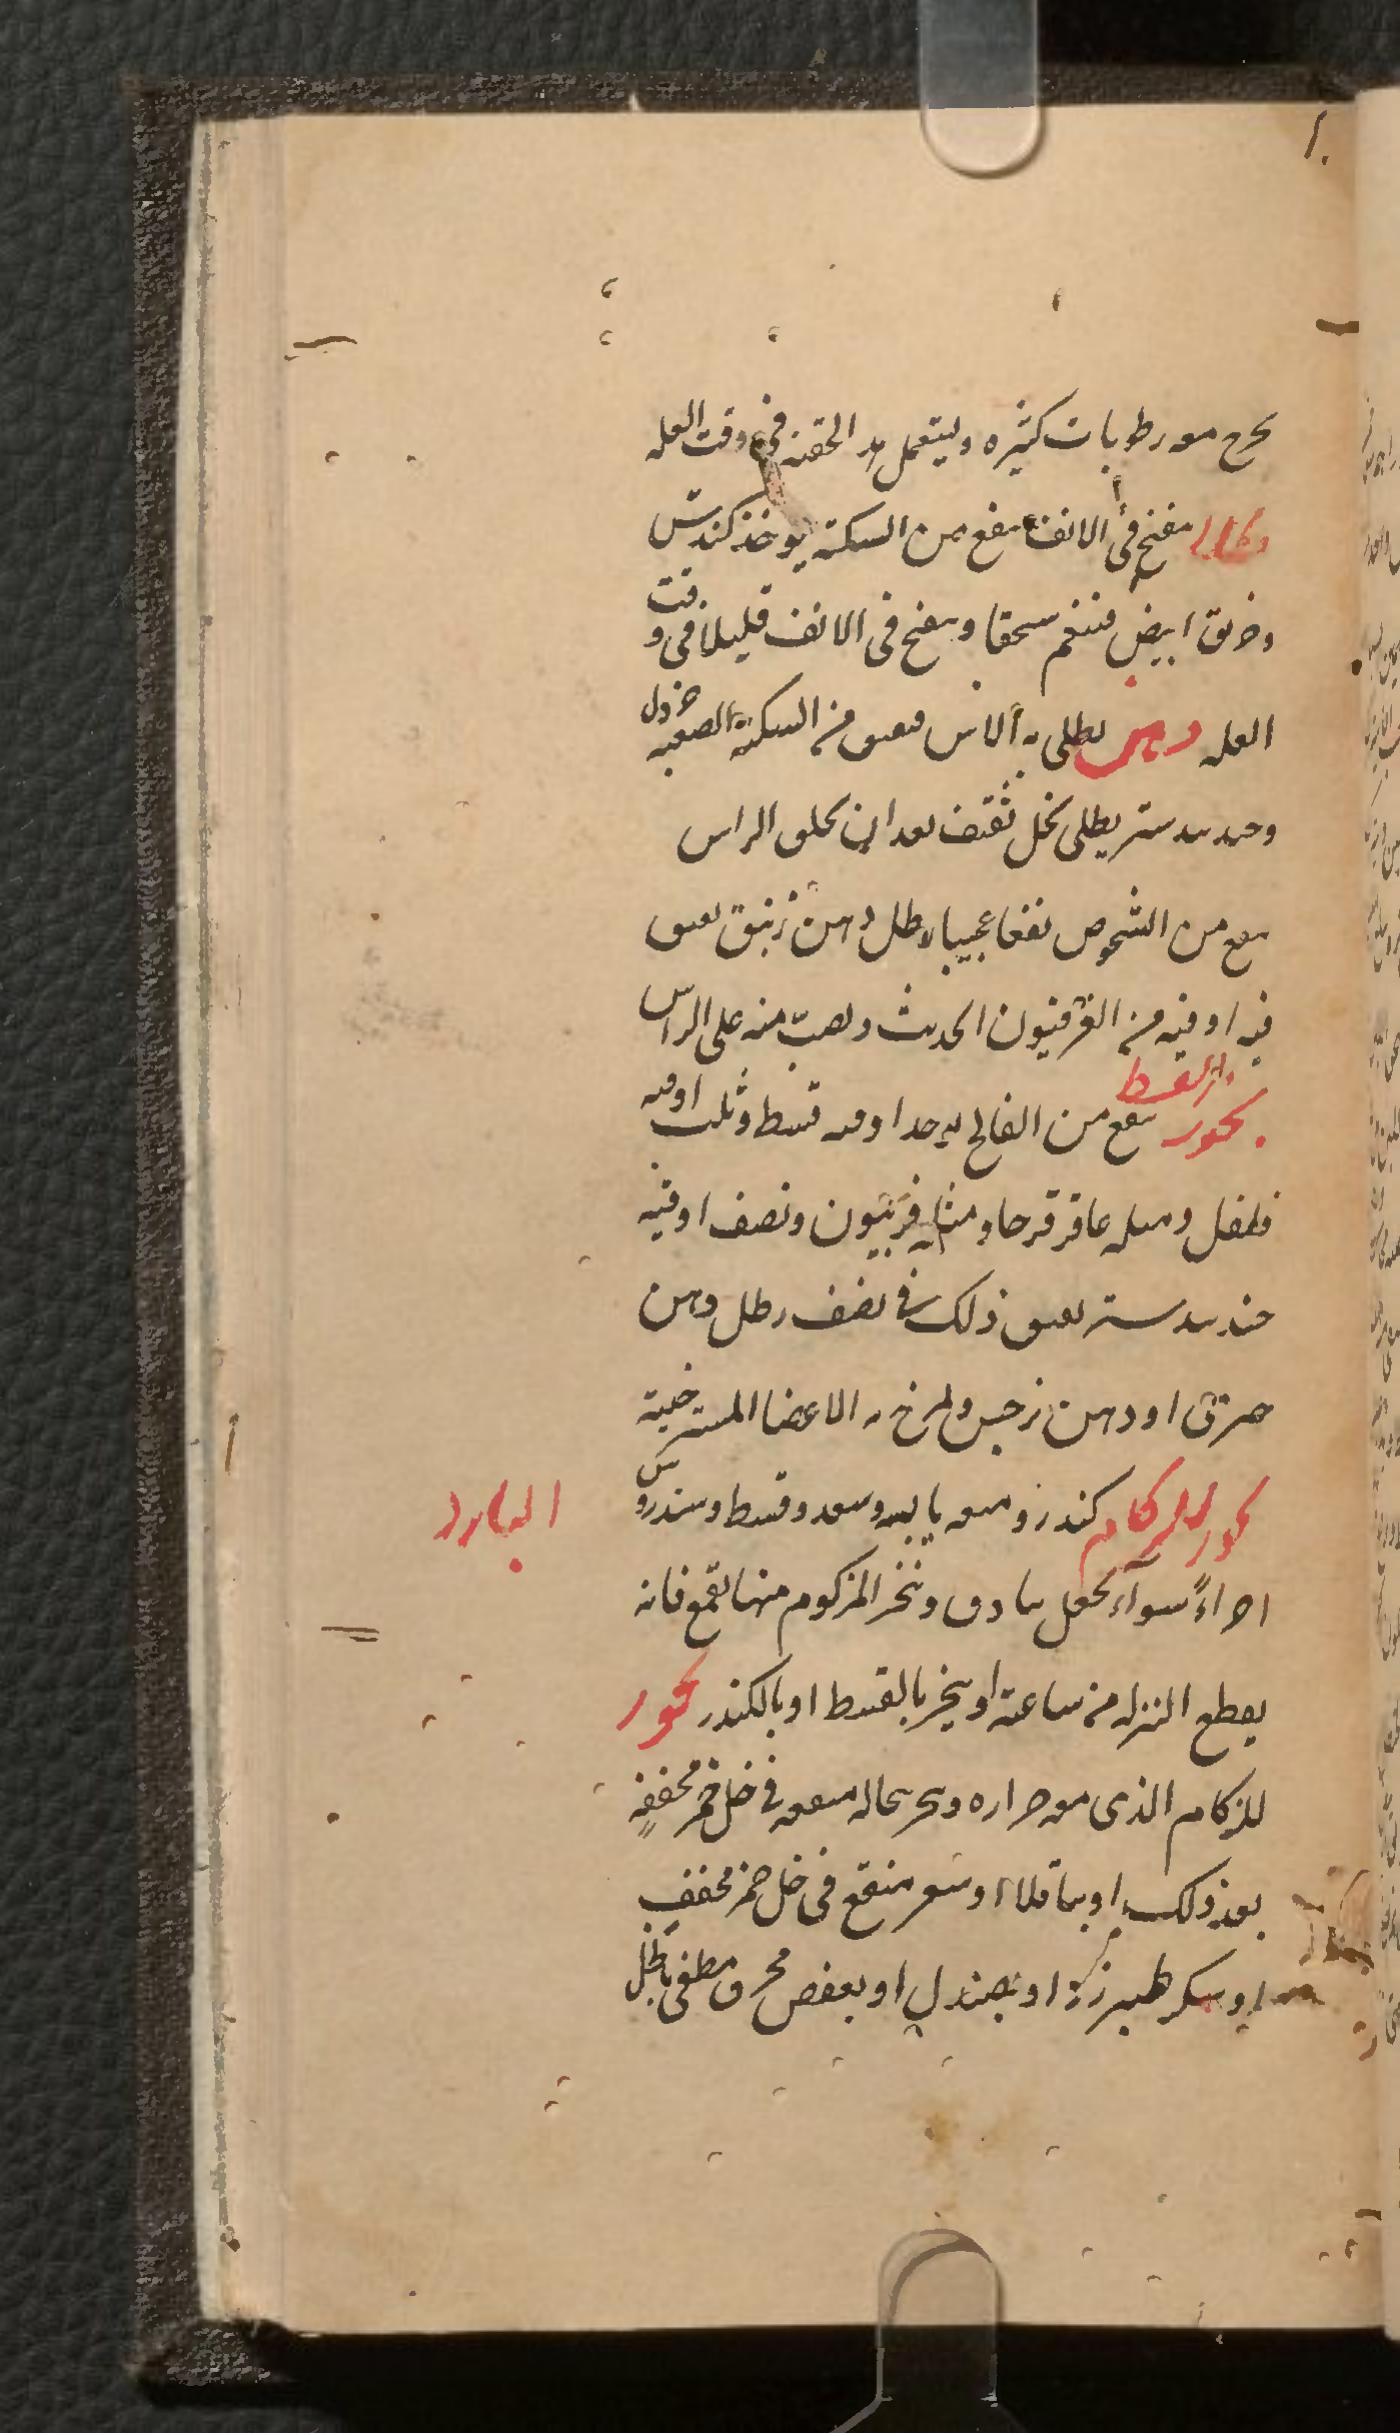 يخرج معه رطوبات كثيره وليستعمل هذه الحقنه في وقت العله
ينفخ في الانف ينفع من السكته يوخذ كندس
وخربق ابيض فينعم سحقا وينفخ في الانف قليلا في وقت
العله دهن يطلى به الراس فيعتق من السكتة الصعبه خردل
وجندبيدستر يطلى بخل ثقيف بعد ان يحلق الراس
ينفع من الشخوص نفعا عجيبا رطل دهن زنبق يفتق
فيه اوقيه من الفرفيون الحديث ويصب منه على الراس
بخور القسط ينفع من الفالج يوخذ اوقيه قسط وثلث اوقيه
فلفل ومثله عاقر قرحا ومثله فربيون ونصف اوقيه
جندبيدستر يفتق ذلك في نصف رطل دهن
خيري او دهن نرجس ويمرخ به الاعضا المسترخية
بخور للزكام كندر وميعه يابسه وسعد وقسط وسندروس
البارد
اجزاءً سوآء يجعل بنادق ويبخر المزكوم منها بقمع فانه
يقطع النزله من ساعته او يبخر بالقسط او بالكندر بخور
للزكام الذى معه حراره ويبخر بنخاله منقعه في خل خمر مجففةٍ
بعد ذلك او بباقلا او شعير منقع في خل خمر مجففٍ
او بسكر طبرزد او بصندل او بعفص محرق مطفى بالخل